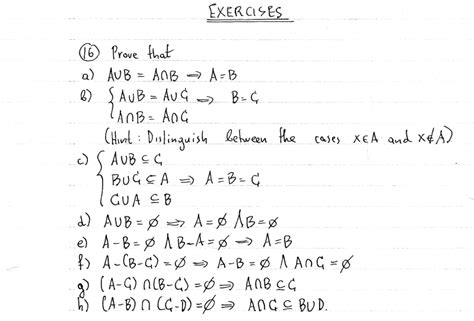 EXERCISES
⑯ Prove that
a) A∪B = A∩B ⇒ A=B
b) { A∪B = A∪G ⇒ B=G
A∩B = A∩G
(Hint: Distinguish between the cases x∈A and x∉A)
c) { A∪B ⊆ G
B∪G ⊆ A ⇒ A=B=G
G∪A ⊆ B
d) A∪B = ∅ ⇒ A=∅ ∧ B=∅
e) A-B=∅ ∧ B-A=∅ ⇒ A=B
f) A-(B-G)=∅ ⇒ A-B=∅ ∧ A∩G=∅
g) (A-G)∩(B-G)=∅ ⇒ A∩B⊆G
h) (A-B)∩(G-D)=∅ ⇒ A∩G⊆B∪D.